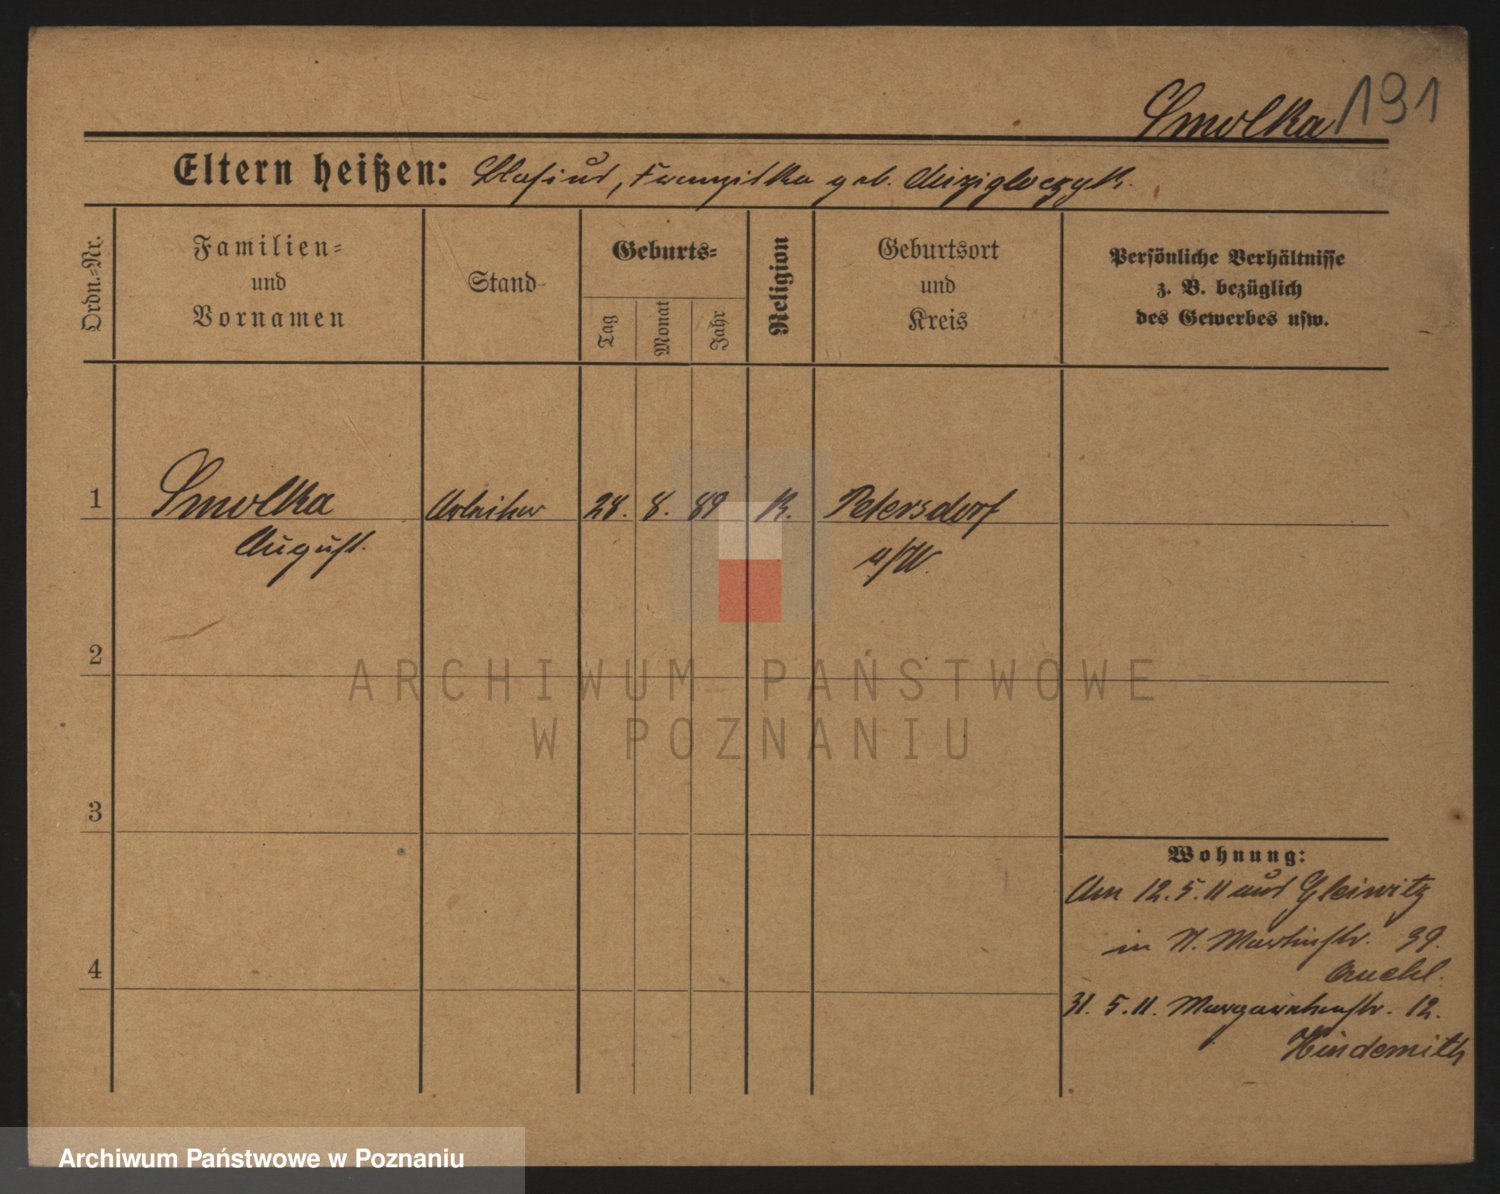 Smolka 191
Eltern heißen: Blasius, Franziska geb.
Ordn.=Nr.
Familien=
und
Vornamen
Stand
Geburts=
Tag
Monat
Jahr
Religion
Geburtsort
und
Kreis
Persönliche Verhältnisse
z. B. bezüglich
des Gewerbes usw.
1 Smolka Arbeiter 28. 8. 89 K. Petersdorf
August.
2
3
4
Wohnung:
Am 12.5.11 aus Gleiwitz
in St. Martinstr. 39.
31. 5.11. Margarethenstr. 12.
Hindemith
ARCHIWUM PAŃSTWOWE
W POZNANIU
Archiwum Państwowe w Poznaniu